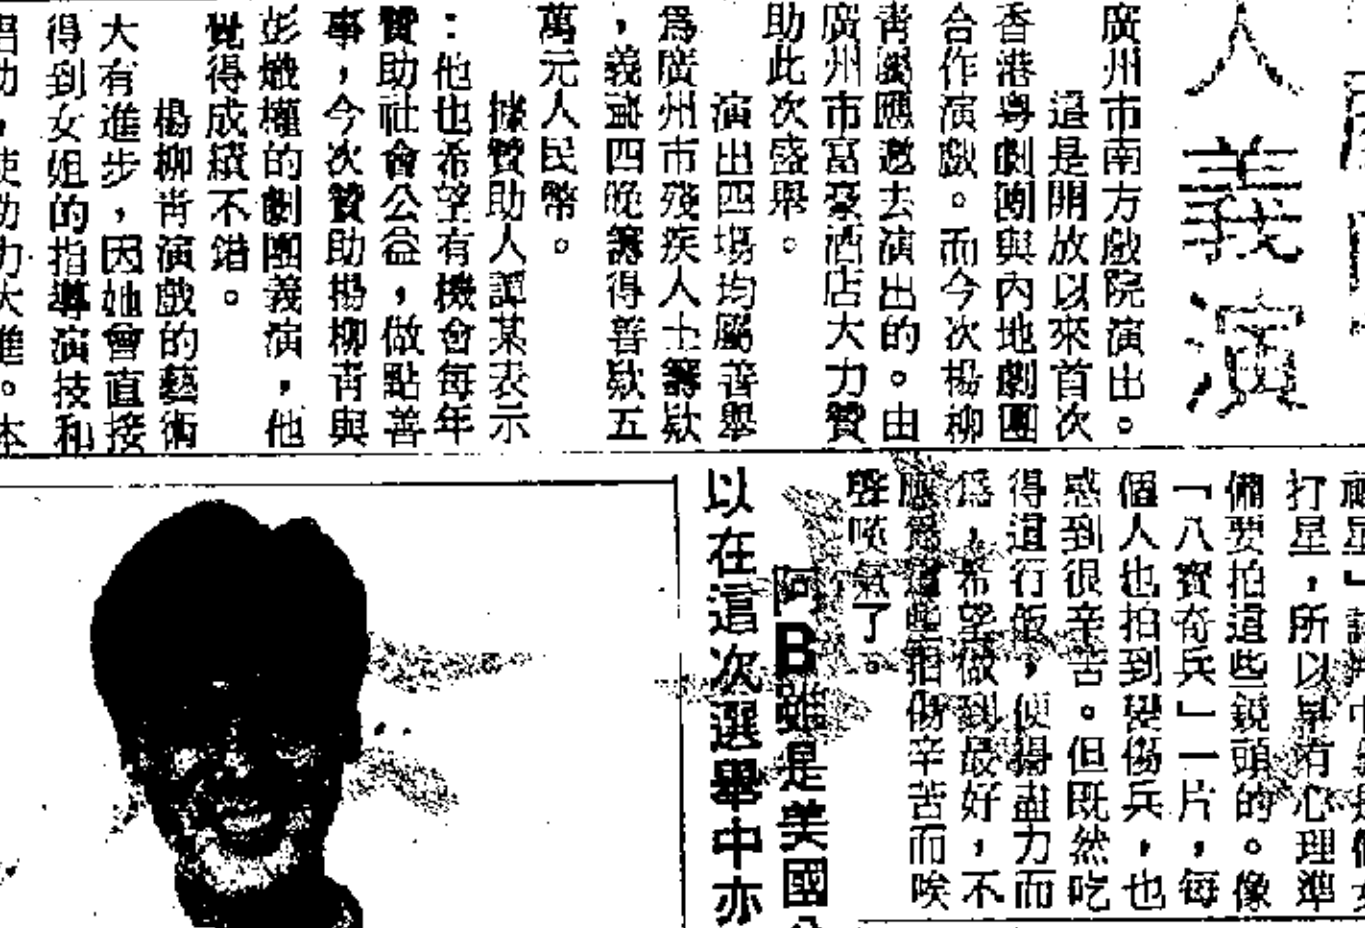 人義演
廣州市南方戲院演出。
這是開放以來首次
香港粤劇團與內地劇團
合作演戲。而今次楊柳
青屬應邀去演出的。由
廣州市富豪酒店大力贊
助此次盛舉。
演出四場均屬善舉
爲廣州市殘疾人士籌欵
，義演四晚籌得善欵五
萬元人民幣。
據贊助人譚某表示
：他也希望有機會每年
贊助社會公益，做點善
事，今次贊助楊柳青與
彭熾權的劇團義演，他
覺得成績不錯。
楊柳青演戲的藝術
大有進步，因她會直接
得到女姐的指導演技和
唱功，使功力大進。本
打星，所以早有心理準
備要拍這些鏡頭的。像
「八寶奇兵」一片，每
個人也拍到變傷兵，也
感到很辛苦。但既然吃
得這行飯，便得盡力而
爲，希望做到最好，不
應爲這些拍傷辛苦而唉
聲嘆氣了。
阿B雖是美國
以在這次選舉中亦